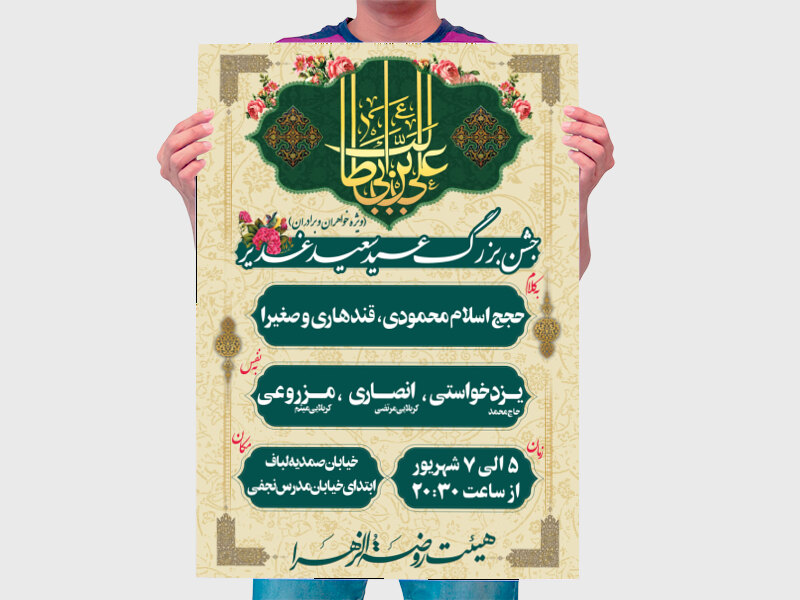 علی بن ابی طالب
(ویژه خواهران و برادران)
جشن بزرگ عید سعید غدیر
به کلام
حجج اسلام محمودی، قندهاری و صغیرا
به نفس
یزدخواستی، انصاری، مزروعی
حاج محمد کربلایی مرتضی کربلایی میثم
زمان
۵ الی ۷ شهریور
از ساعت ۲۰:۳۰
مکان
خیابان صمدیه لباف
ابتدای خیابان مدرس نجفی
هیئت روضة الزهرا